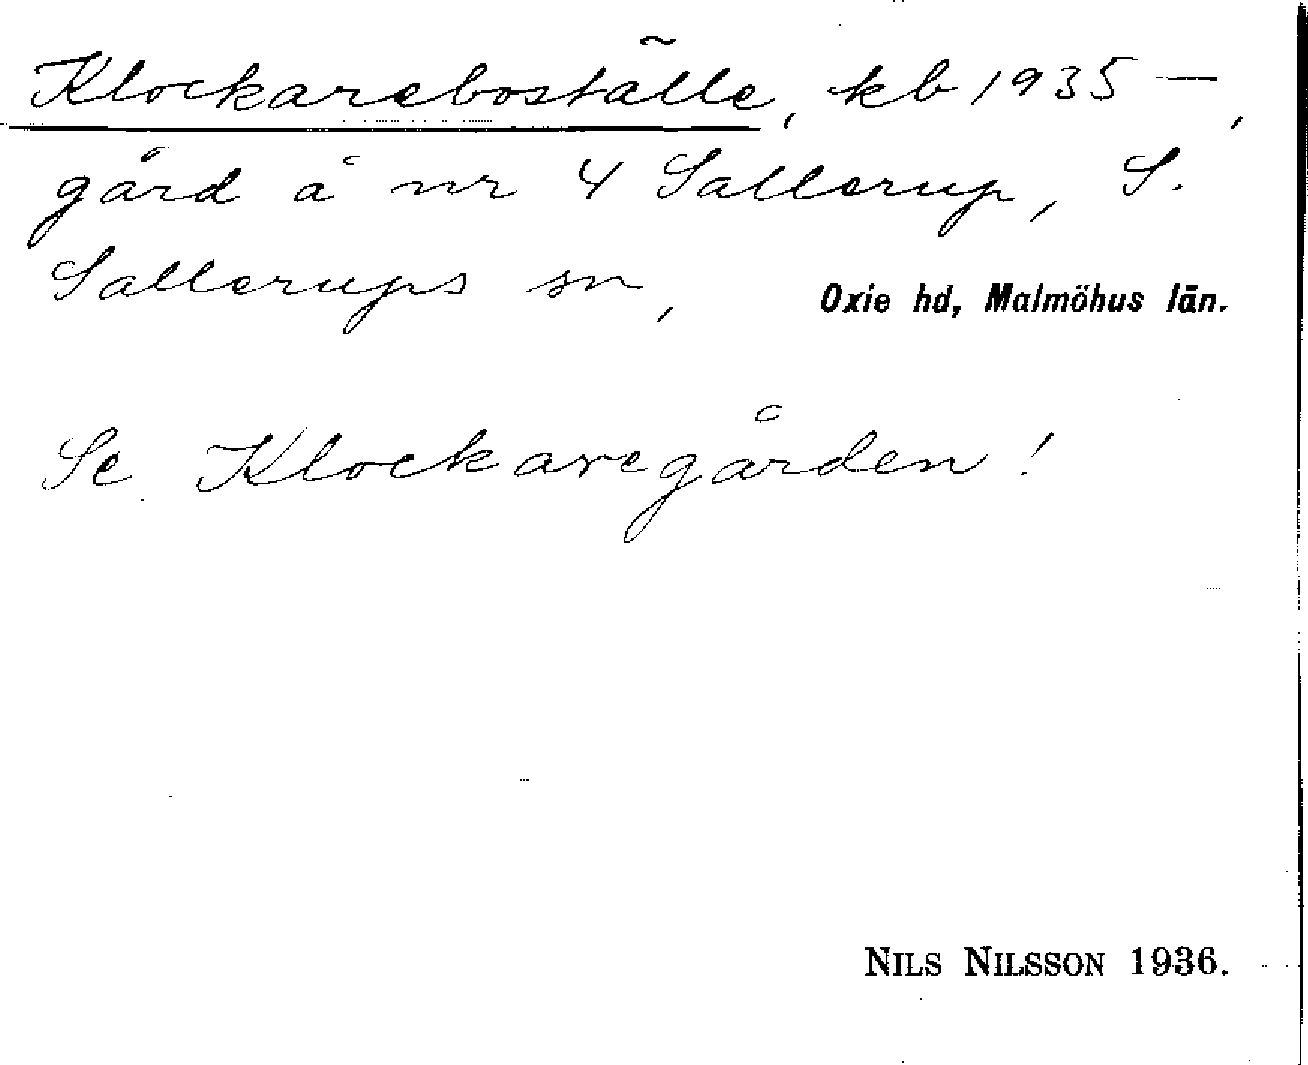 Klockareboställe, kb 1935 –,
gård å nr 4 Sallerup, S.
Sallerups sn, Oxie hd, Malmöhus län.
Se Klockaregården!
NILS NILSSON 1936.